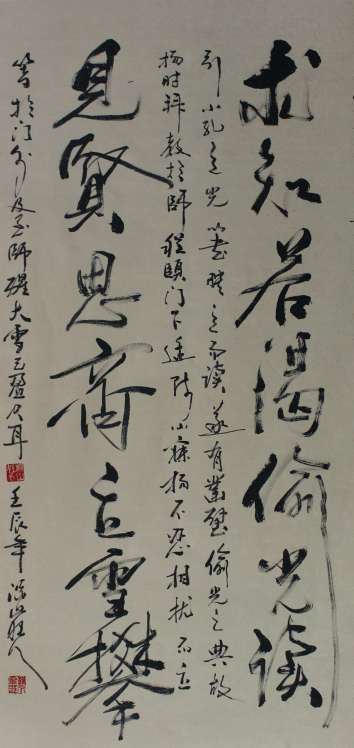 求知若渴偷光读
引小孔之光映之而读遂有鑿壁偷光之典故
杨时拜教於師程頤门下适小寐杨不忍相扰而立
見賢思齊立雪攀
等於门外及至師醒大雪已盈尺耳
壬辰年